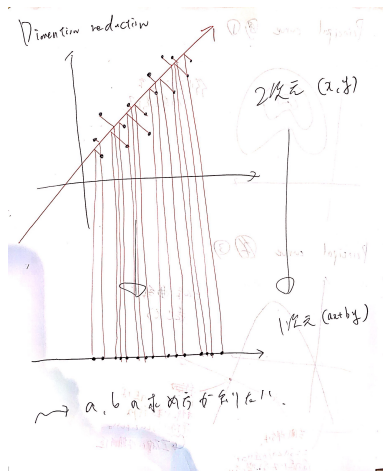 Dimention reduction
2次元 (x, y)
1次元 (ax+by)
〜→ a, b の求め方が知りたい.